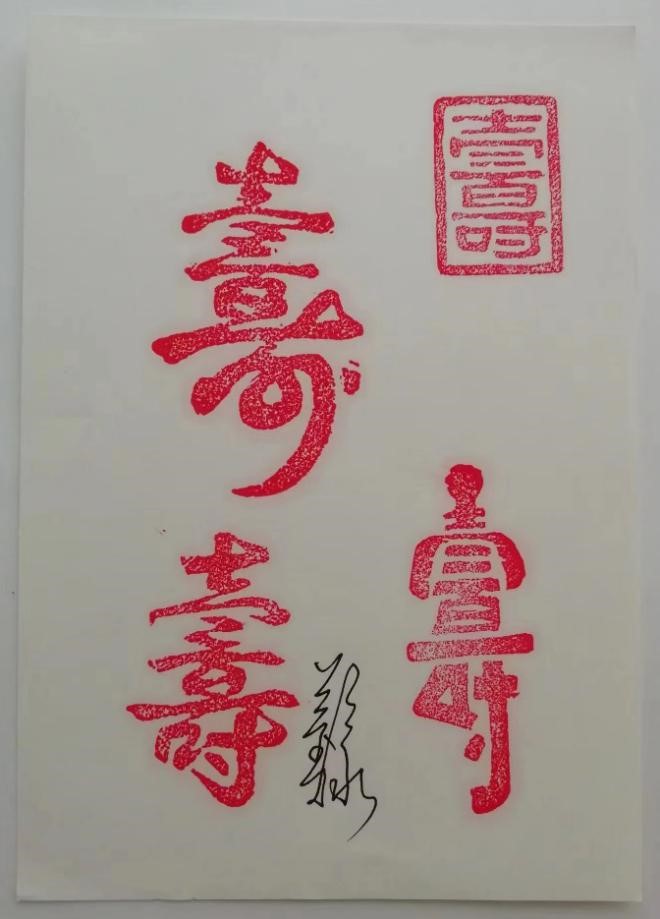 壽
壽
壽
壽